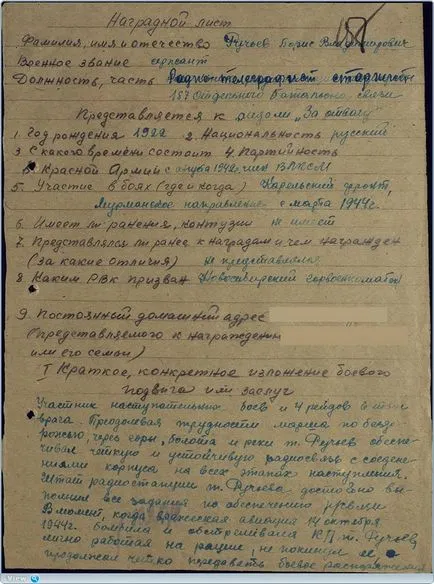 Наградной лист
Фамилия, имя и отчество Ручьев Борис Владимирович
Военное звание сержант
Должность, часть Радиотелеграфист старший
Отдельного батальона связи
Представляется к медали "За отвагу"
1. Год рождения 1922 2. Национальность русский
3. С какого времени состоит 4. Партийность
в Красной Армии с 1942 г. член ВЛКСМ
5. Участие в боях (где и когда) Карельский фронт,
Мурманское направление с марта 1944 г.
6. Имеет ли ранения, контузии не имеет
7. Представлялся ли ранее к наградам и чем награжден
(за какие отличия) не представлялся
8. Каким РВК призван Новосибирский горвоенкомат
9. Постоянной домашний адрес
(представляемого к награждению
или его семьи)
I Краткое, конкретное изложение боевого
подвига или заслуг
Участник наступательных боев и 4 рейдов в тыл
врага. Преодолевая трудности марша по бездо-
рожью, через горы, болота и реки т. Ручьев обеспе-
чивал чёткую и устойчивую радиосвязь с соедине-
ниями корпуса на всех этапах наступления.
Штат радиостанции т. Ручьева достойно вы-
полнил все задания по обеспечению
В момент, когда вражеская авиация 14 октября
1944г. бомбила и обстреливала КП т. Ручьев,
лично работая на рации, не покинул ее и
продолжал чётко передавать боевое распоряжения